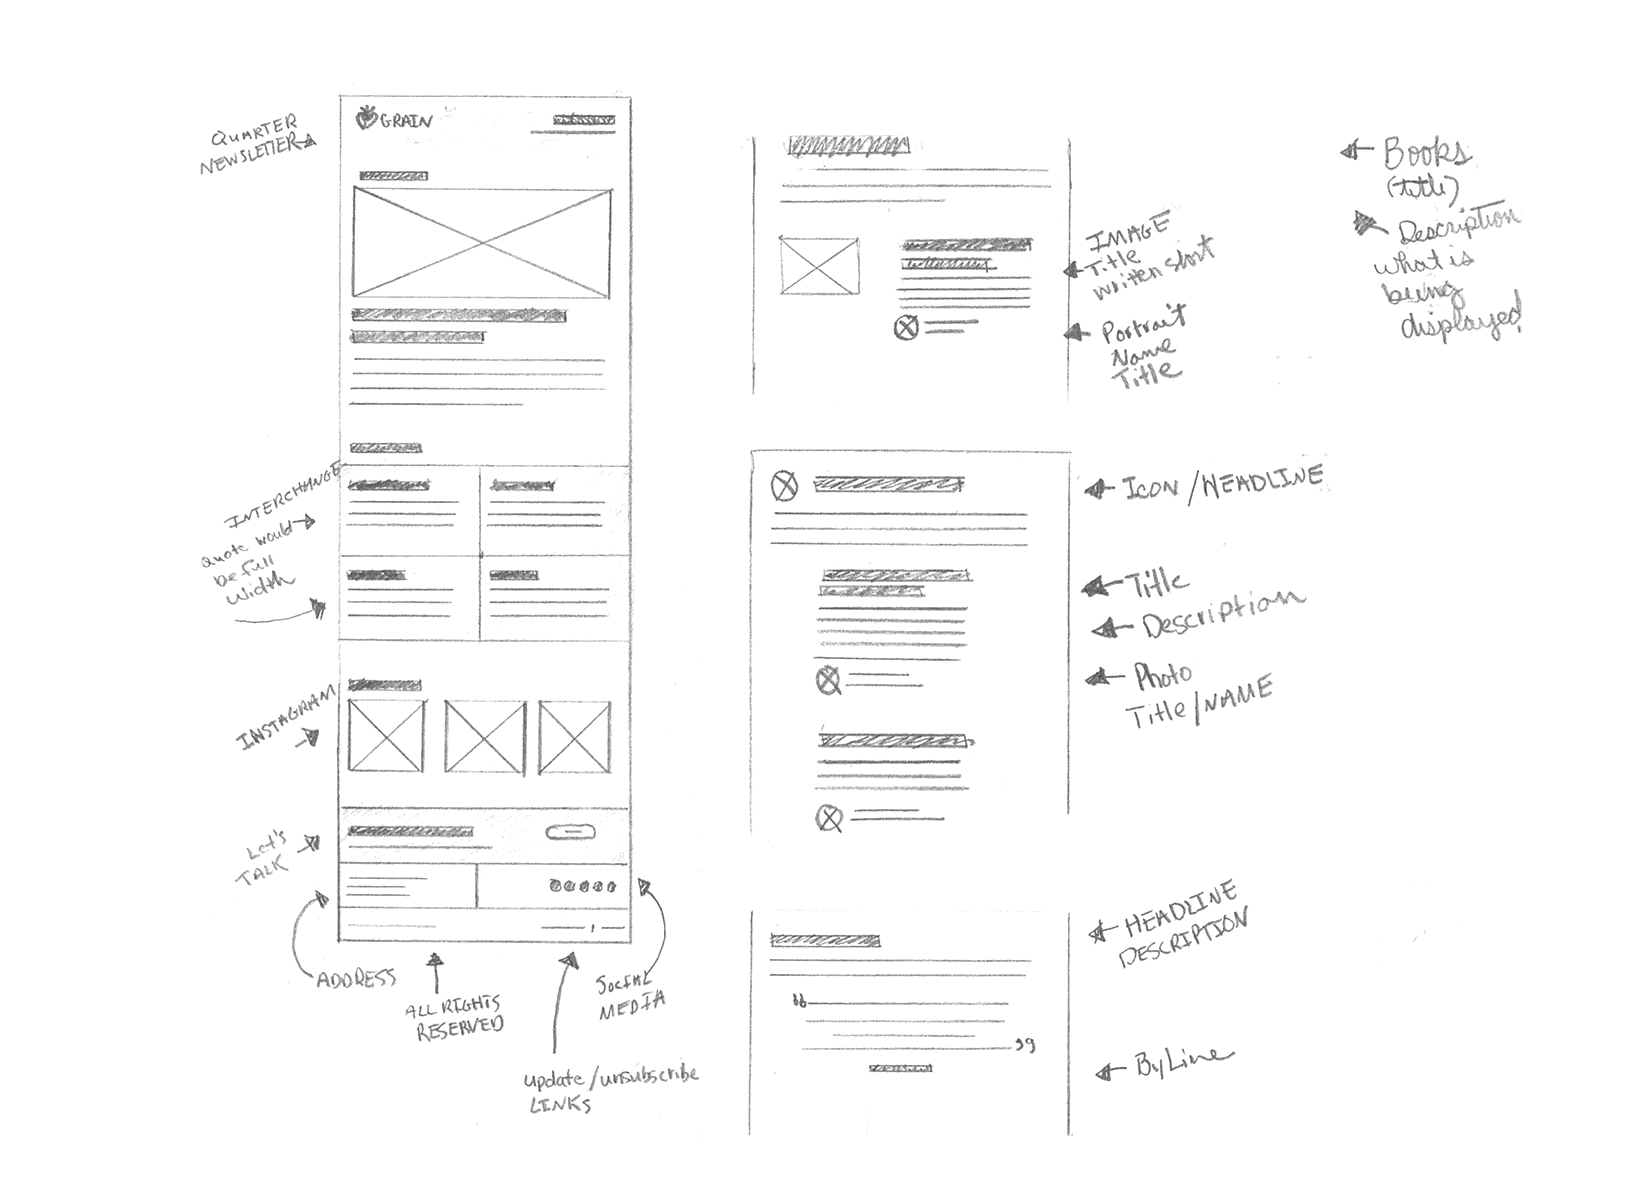 QUARTER
NEWSLETTER
GRAIN
INTERCHANGE
Quote would
be full
width
INSTAGRAM
Let's
TALK
ADDRESS
ALL RIGHTS
RESERVED
Update/unsubscribe
LINKS
SOCIAL
MEDIA
IMAGE
Title
written short
Portrait
Name
Title
Books
(title)
Description
what is
being
displayed!
ICON/HEADLINE
Title
Description
Photo
Title/NAME
HEADLINE
DESCRIPTION
ByLine